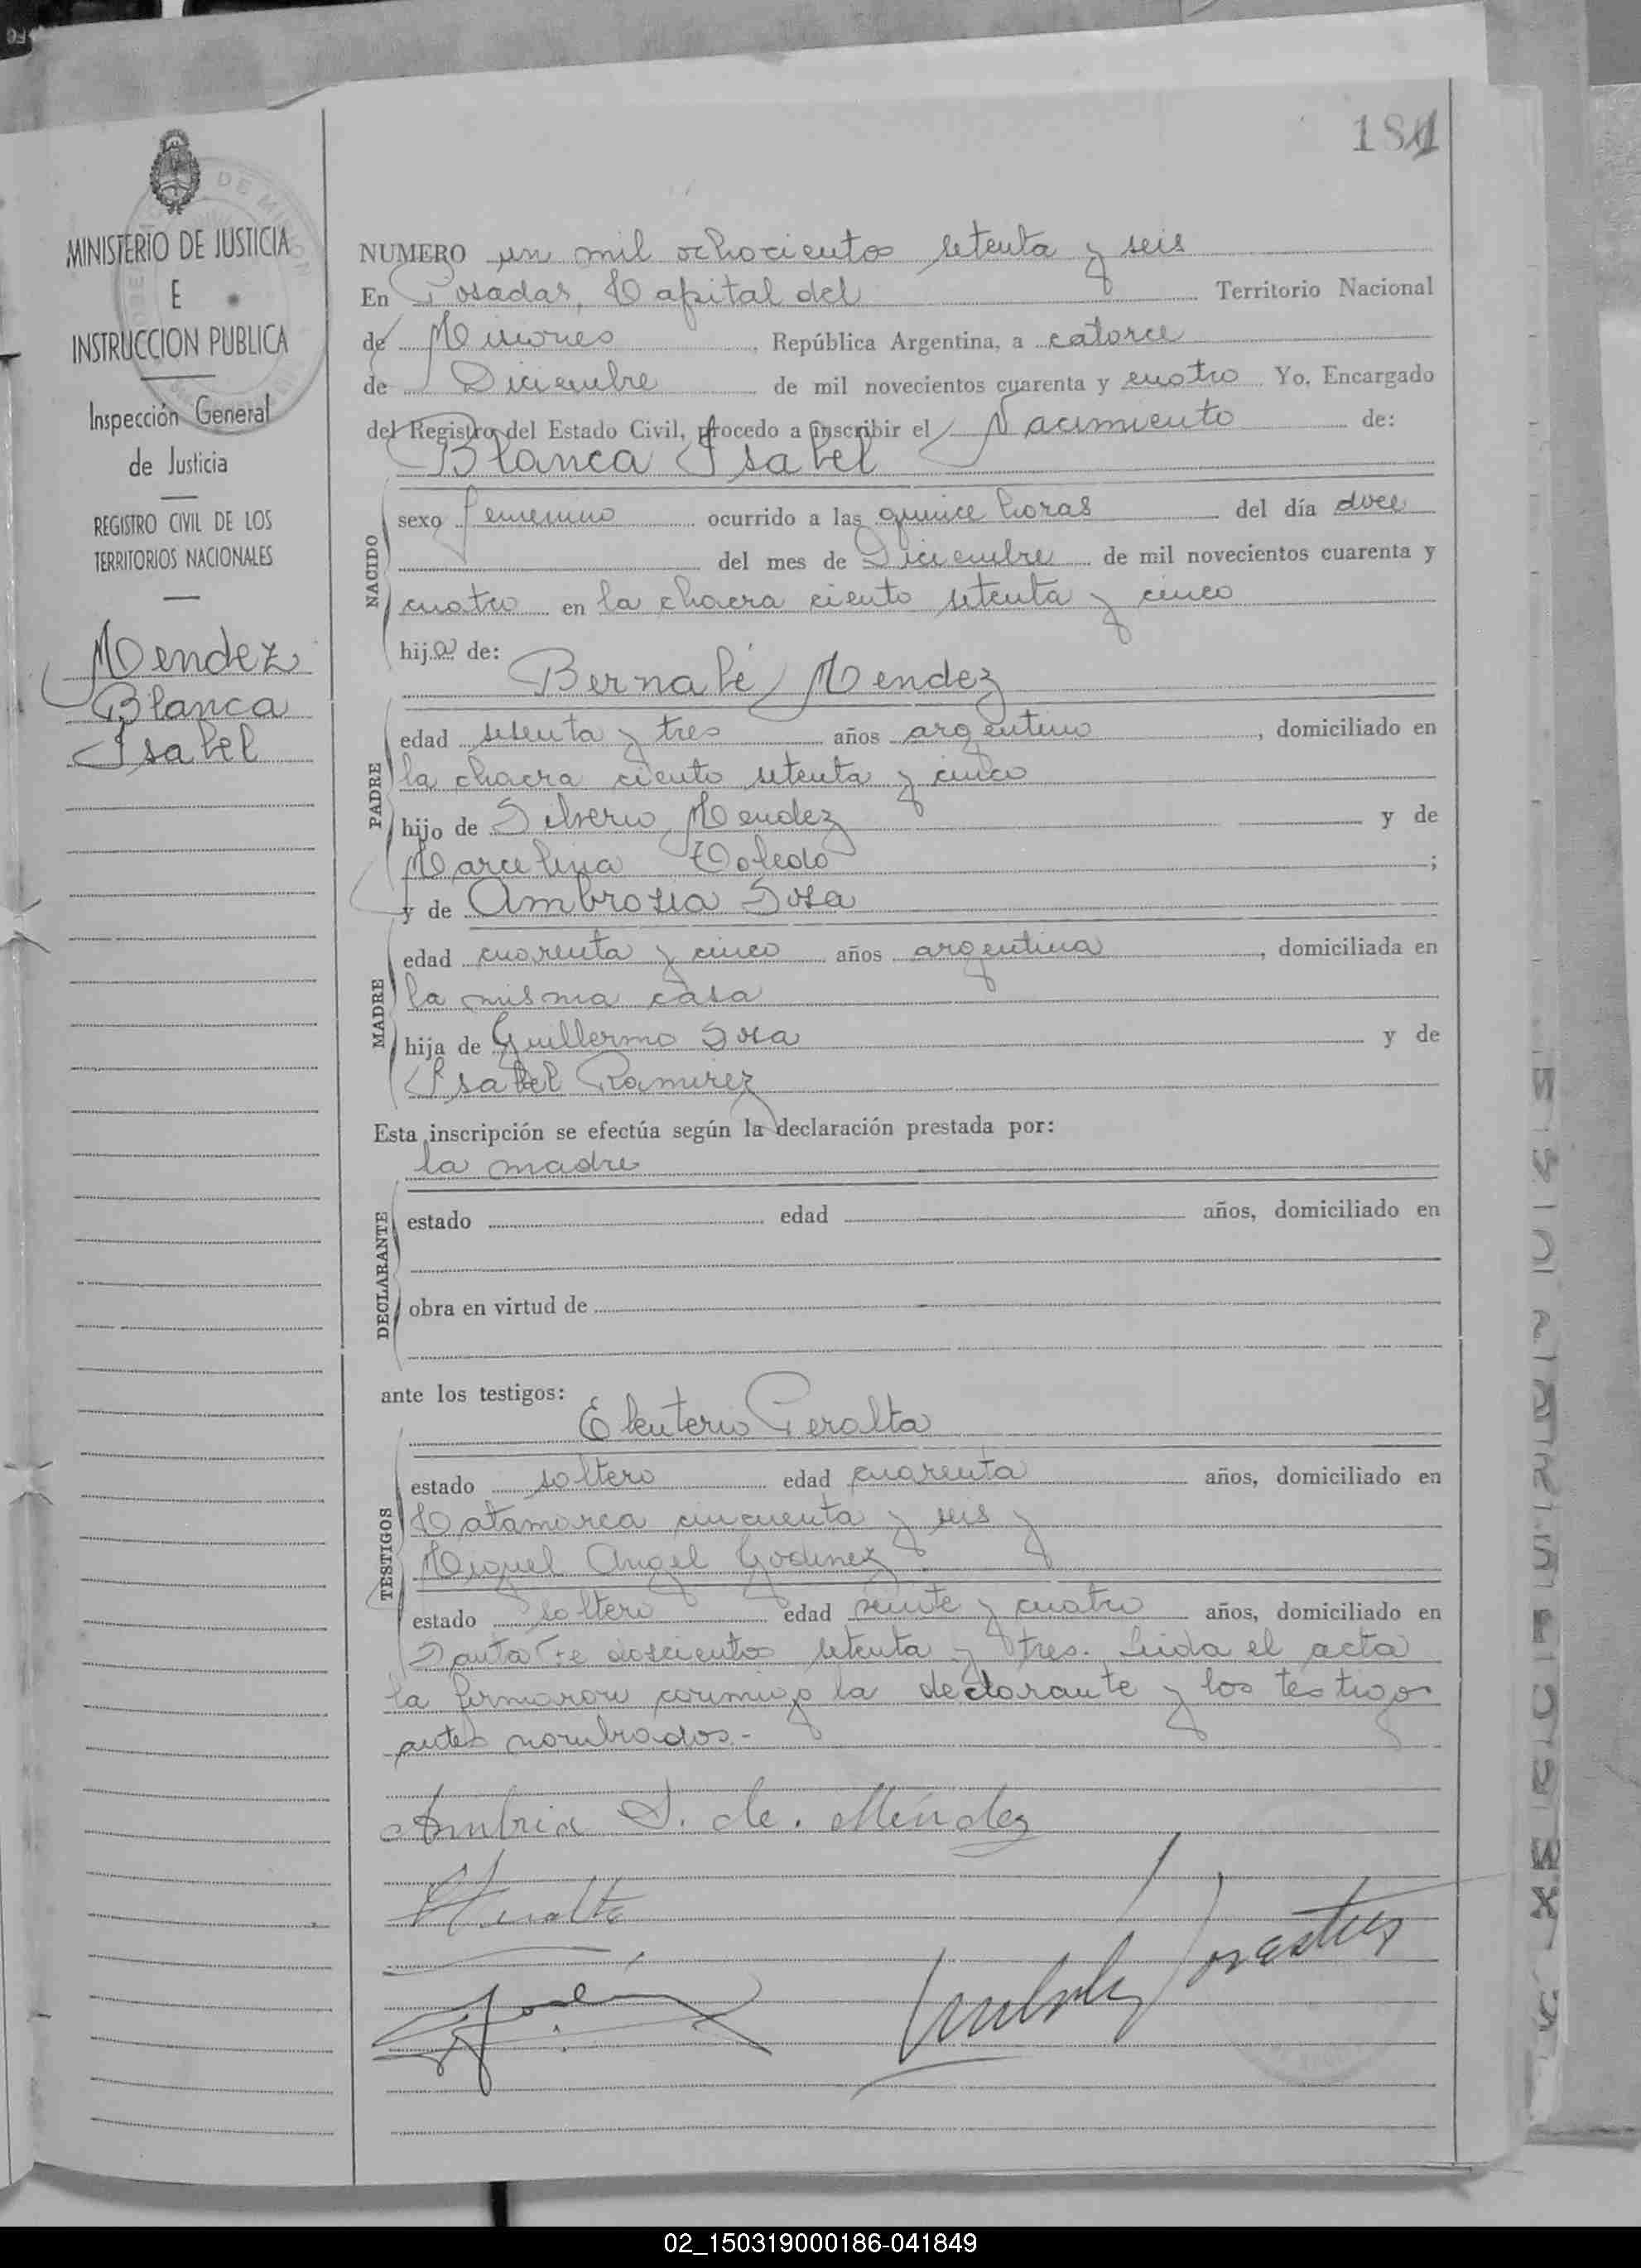 181
MINISTERIO DE JUSTICIA
E
INSTRUCCION PUBLICA
Inspección General
de Justicia
REGISTRO CIVIL DE LOS
TERRITORIOS NACIONALES
Mendez
Blanca
Isabel
NUMERO un mil ochocientos setenta y seis
En Posadas, Capital del Territorio Nacional
de Misiones, República Argentina, a catorce
de Diciembre de mil novecientos cuarenta y cuatro Yo, Encargado
del Registro del Estado Civil, procedo a inscribir el Nacimiento de:
Blanca Isabel
NACIDO
sexo femenino ocurrido a las quince horas del día doce
del mes de Diciembre de mil novecientos cuarenta y
cuatro en la chacra ciento setenta y cinco
hija de:
Bernabé Mendez
PADRE
edad sesenta y tres años argentino, domiciliado en
la chacra ciento setenta y cinco
hijo de Silverio Mendez y de
Marcelina Toledo;
y de Ambrosia Sosa
MADRE
edad cuarenta y cinco años argentina, domiciliada en
la misma casa
hija de Guillermo Sosa y de
Isabel Ramirez
Esta inscripción se efectúa según la declaración prestada por:
la madre
DECLARANTE
estado edad años, domiciliado en
obra en virtud de
ante los testigos:
Eleuterio Peralta
TESTIGOS
estado soltero edad cuarenta años, domiciliado en
Catamarca cincuenta y seis y
Miguel Angel Godinez
estado soltero edad veinte y cuatro años, domiciliado en
Santa Fe doscientos setenta y tres. Leida el acta
la firmaron conmigo la declarante y los testigos
antes nombrados.-
Ambria S. de. Méndez
Peralta
02_150319000186-041849